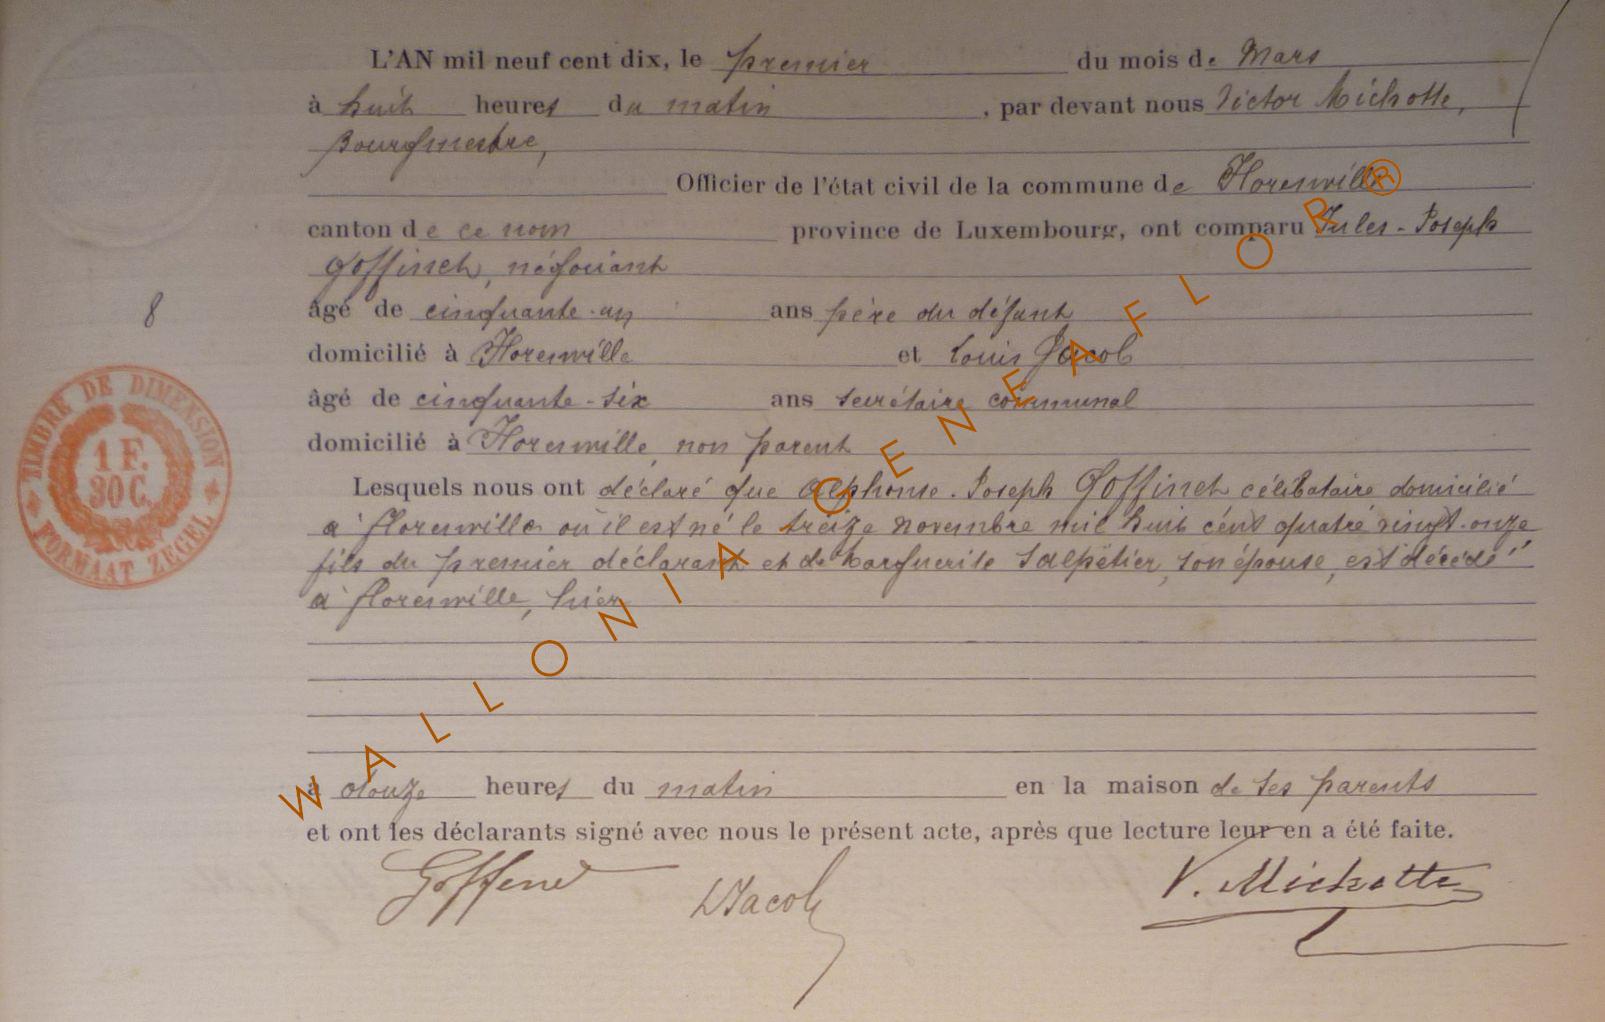 L'AN mil neuf cent dix, le premier du mois de Mars
à huit heures du matin, par devant nous Victor Michotte,
Bourgmestre,
Officier de l'état civil de la commune de Florenville
canton de ce nom province de Luxembourg, ont comparu Jules-Joseph
Goffinet, négociant
âgé de cinquante-un ans père du défunt
domicilié à Florenville et Louis Jacob
8
âgé de cinquante-six ans secrétaire communal
domicilié à Florenville, non parent
Lesquels nous ont déclaré que Alphonse-Joseph Goffinet célibataire domicilié
à florenville où il est né le treize novembre mil huit cent quatre vingt-onze
fils du premier déclarant et de Marguerite Salpétier, son épouse, est décédé
à florenville, hier
à douze heures du matin en la maison de ses parents
et ont les déclarants signé avec nous le présent acte, après que lecture leur en a été faite.
Goffinet
LJacob
V. Michotte
TIMBRE DE DIMENSION
1 F.
30 C.
FORMAAT ZEGEL
WALLONIA GENEAFLOR ®